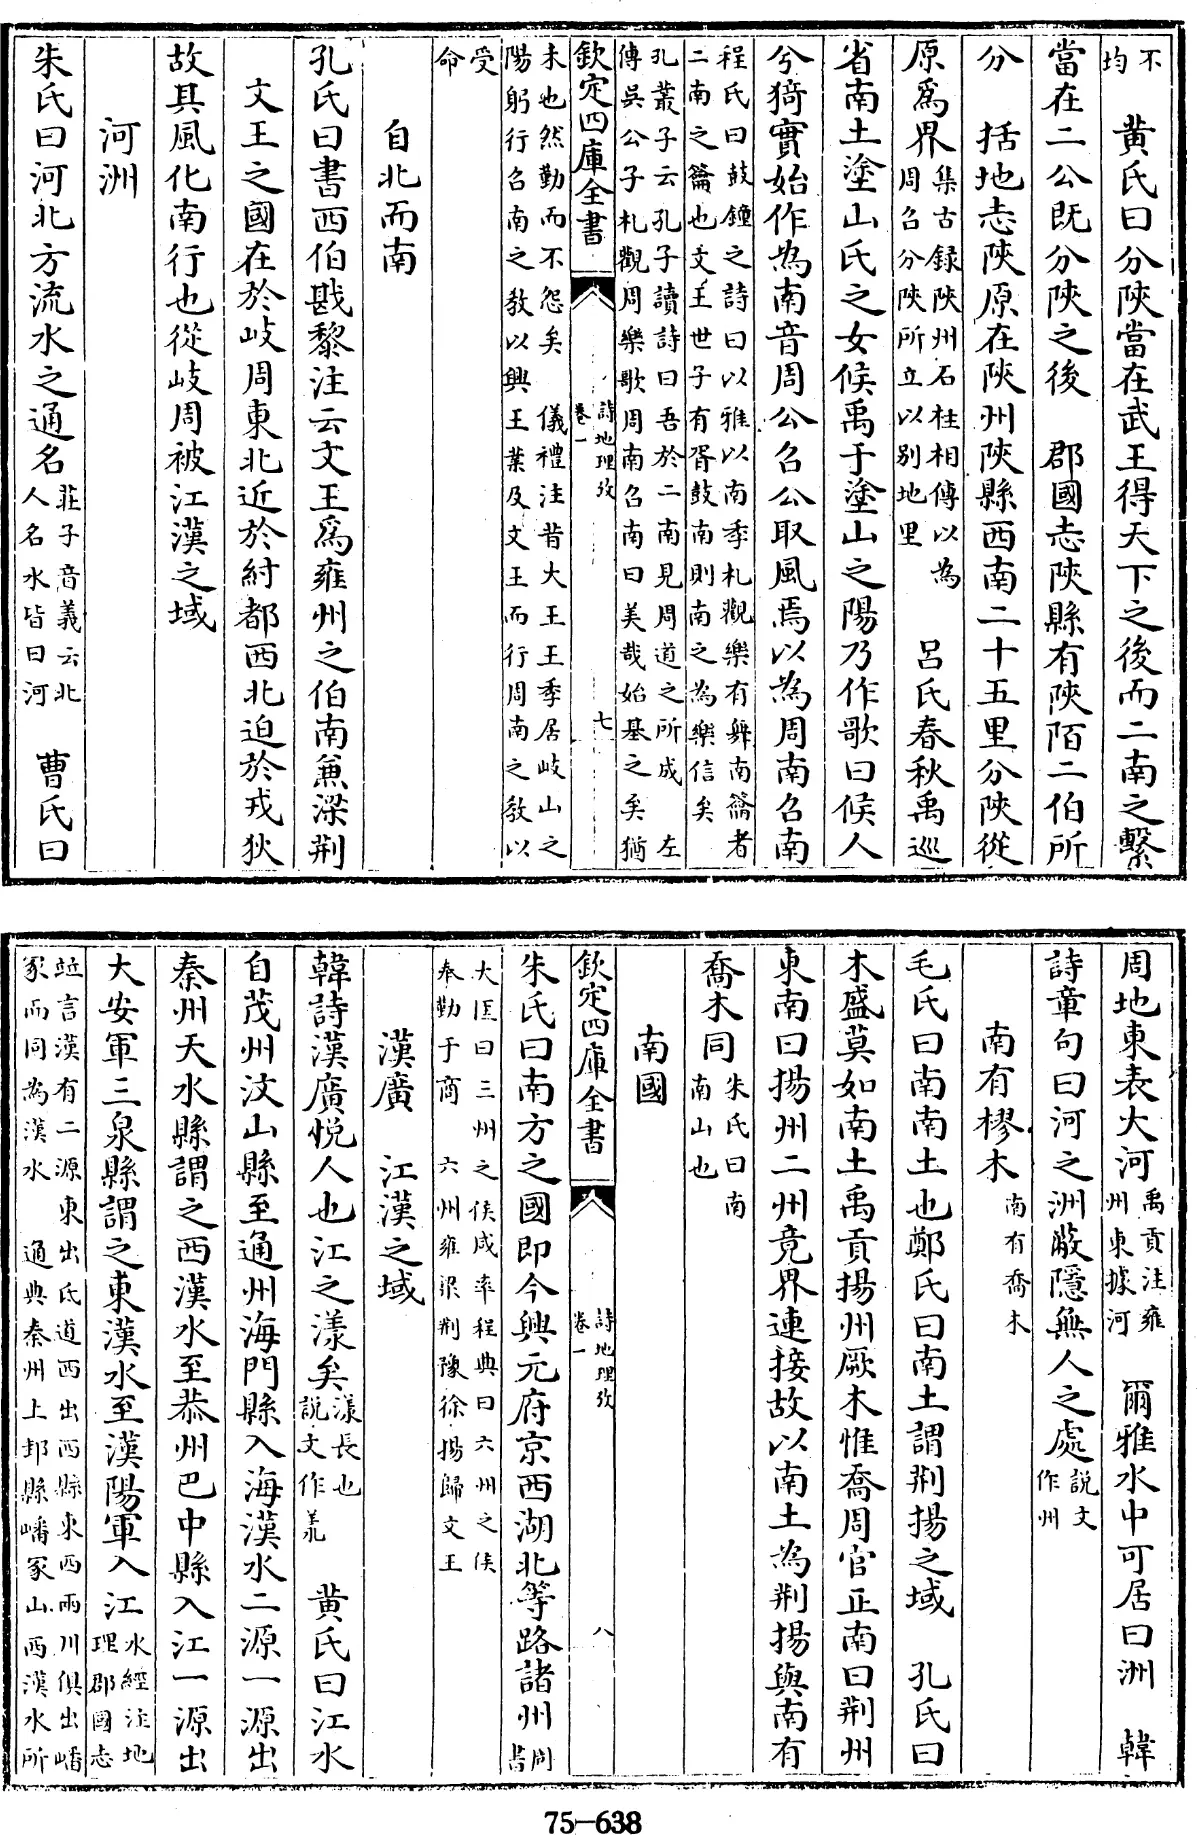 不均　黄氏曰分陜當在武王得天下之後而二南之繫
當在二公既分陜之後　郡國志陜縣有陜陌二伯所
分　括地志陜原在陜州陜縣西南二十五里分陜從
原爲界集古録陜州石柱相傳以為周召分陜所立以别地里　吕氏春秋禹巡
省南土塗山氏之女候禹于塗山之陽乃作歌曰候人
兮猗實始作為南音周公召公取風焉以為周南召南
程氏曰鼓鐘之詩曰以雅以南季札觀樂有舞南籥者
二南之籥也文王世子有胥鼓南則南之為樂信矣
孔叢子云孔子讀詩曰吾於二南見周道之所成　左
傳吳公子札觀周樂歌周南召南曰美哉始基之矣猶
欽定四庫全書　詩地理攷　卷一　七
未也然勤而不怨矣　儀禮注昔大王王季居岐山之
陽躬行召南之教以興王業及文王而行周南之教以
受命
自北而南
孔氏曰書西伯戡黎注云文王爲雍州之伯南兼梁荆
文王之國在於岐周東北近於紂都西北迫於戎狄
故其風化南行也從岐周被江漢之域
河洲
朱氏曰河北方流水之通名莊子音義云北人名水皆曰河　曹氏曰
周地東表大河禹貢注雍州東據河　爾雅水中可居曰洲　韓
詩章句曰河之洲蔽隱無人之處説文作州
南有樛木南有喬木
毛氏曰南南土也鄭氏曰南土謂荆揚之域　孔氏曰
木盛莫如南土禹貢揚州厥木惟喬周官正南曰荆州
東南曰揚州二州竟界連接故以南土為荆揚與南有
喬木同朱氏曰南南山也
南國
欽定四庫全書　詩地理攷　卷一　八
朱氏曰南方之國即今興元府京西湖北等路諸州周書
大匡曰三州之侯咸率程典曰六州之侯
奉勤于商　六州雍梁荆豫徐揚歸文王
漢廣　江漢之域
韓詩漢廣悦人也江之漾矣漾長也説文作羕　黄氏曰江水
自茂州汶山縣至通州海門縣入海漢水二源一源出
秦州天水縣謂之西漢水至恭州巴中縣入江一源出
大安軍三泉縣謂之東漢水至漢陽軍入江水經注地理郡國志
竝言漢有二源東出氐道西出西縣東西兩川俱出嶓
冢而同為漢水　通典秦州上邽縣嶓冢山西漢水所
75—638